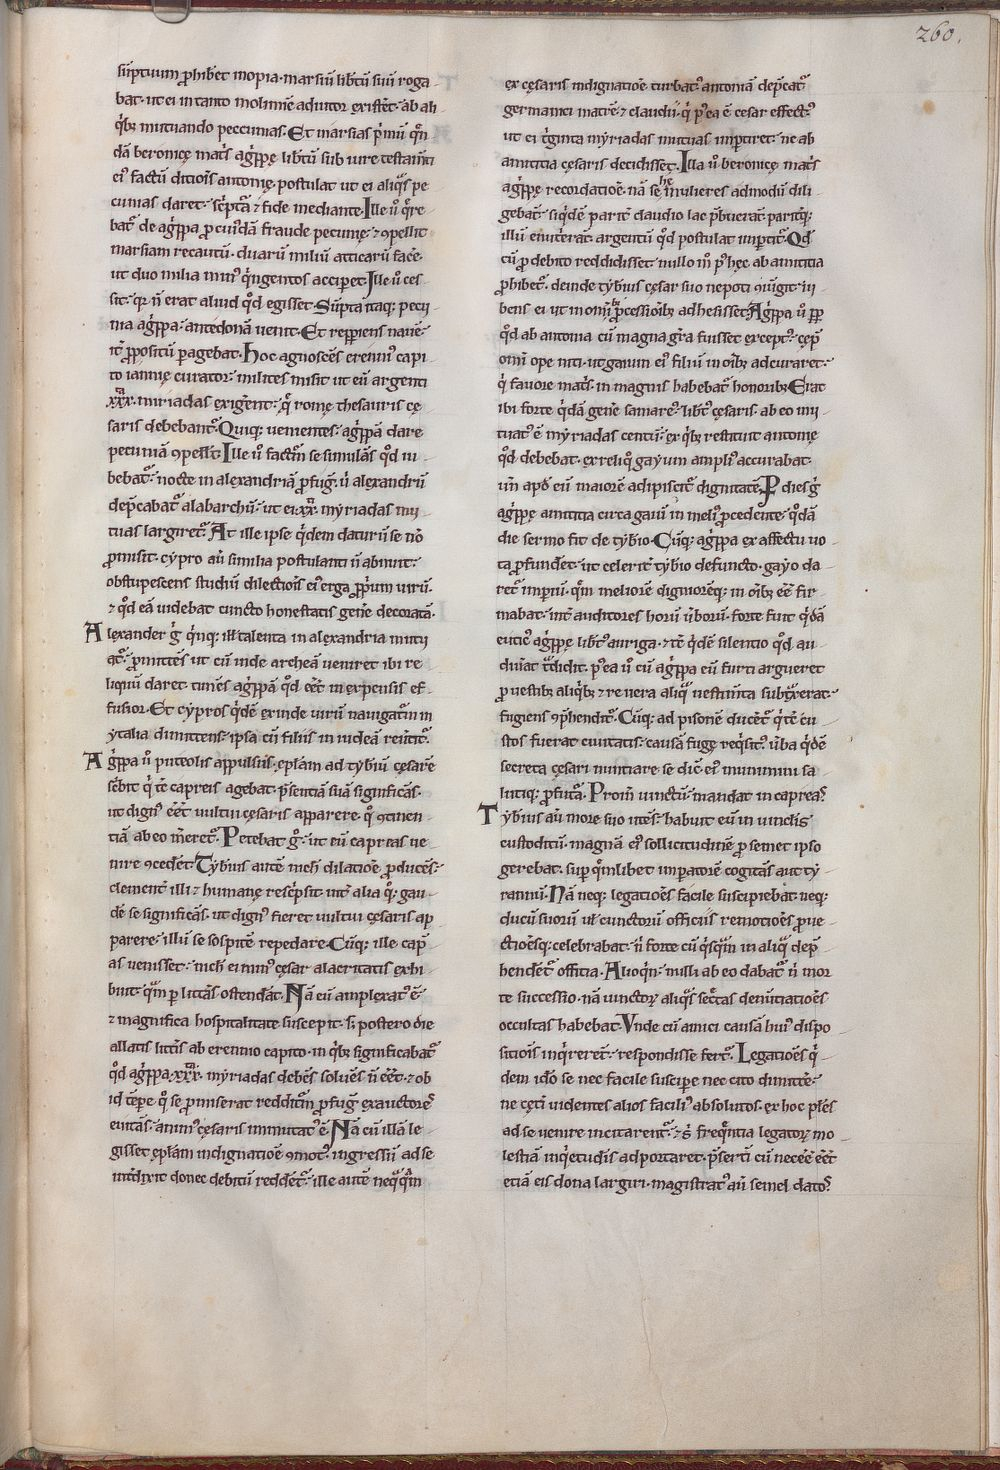 260.
sūptuum ꝓhib&et inopia. marsiū lib̄tū suū roga
bat. ut ei in tanto molimīe adiutor existēt. ab ali
q̇bꝫ mutuando peccunias. Et marsias p̄mū q̄n
dā beronicę mat̄s agr̄ppę lib̄tū sub iure testam̄ti
ei᾽ factū dicioīs antonię. postulat ut ei aliq̄s pe
cunias daret. sc̄pt̄a ⁊ fide mediante. Ille u̓ q̄re
bat᷑ de agr̄ppa ꝓ cui᾽dā fraude pecunię. ⁊ ꝯpellit
marsiam recautū. duarū miliū atticarū fac̄e.
ut duo milia min᾽ q̇ngentos accip̄et. Ille u̓ ces
sit. qꝛ n̄ erat aliud qd̄ egisset. Sūpta itaqꝫ pecu
nia agr̄ppa. antedonā uenit. Et repp̄iens nauē.
it̄ ꝓpositū p̄agebat. Hoc agnoscēs erenni᾽ capi
to iannię curator. milites misit ut eū argenti
xxx. miriadas exiḡent. q̄ romę thesauris cę
saris debebant᷑. Quiqꝫ uenientes. agr̄ppā dare
pecuniā ꝯpell̄t. Ille u̓ fact̄m se simulās qd̄ iu
bebat᷑. nocte in alexandriā ꝓfuḡ. u̓ alexandrū
dep̄cabat᷑ alabarchū. ut ei xx. myriadas mu
tuas largiret᷑. At ille ipse q̇dem daturū se nō
ꝓmisit. cypro aū similia postulanti n̄ abnuit.
obstupescens studiū dilectiois ei᾽ erga ꝓp̄um uirū.
⁊ qd̄ eā uidebat cuncto honestatis geñe decoratā.
Alexander ḡ q̇nqꝫ ill̄ talenta in alexandria mutu
at᾽. ꝓmittēs ut cū inde archeā ueniret ibi re
liquū daret. timēs agr̄ppā qd̄ eēt in expensis ef
fusior. Et cypros q̇dē exinde uirū nauigat̄m in
ytalia dimittens. ipsa cū filiis in iudeā reūtit᷑.
Agr̄ppa u̓ puteolis appulsus. ep̄lam ad tyb̄iū cęsarē
sc̄bit q̇ tc̄ capreis agebat. p̄sentiā suā significās.
ut dign᾽ eēt uultui cęsaris apparere. q᾽ ꝯtinen
tiā ab eo m̄eret᷑. Petebat ḡ. ut eū capreas ue
nire ꝯced̄et. Tyb̄ius autē nich̄ dilatiōe ꝓducēs.
clement̄ illi ⁊ humanę resc̄psit int̄ alia qꝫ. gau
dē se significās. ut dign᾽ fieret uultui cęsaris ap
parere. illū se sospitē repedare. Cūqꝫ ille cap̄
as uenisset. nich̄ ei min᾽ cęsar alacritatis exhi
buit. q̄m p̄ litt̄as ostendāt. Nā eū amplexat᾽ ē
⁊ magnifica hospitalitate suscepit. s; postero die
allatis litt̄is ab erennio capito. in q̇bꝫ significabat᷑
qd̄ agr̄ppa. xxx. myriadas debēs soluēs n̄ eēt. ⁊ ob
id tēp̄e q᾽ se ꝓmiserat reddit̄m ꝓfuḡ. exauctore᾽
euitās. anim᾽ cęsaris immutat᾽ ē. Nā cū illā le
gisset ep̄lam indignatiōe ꝯmot᾽. ingressū ad se
int̄dixit donec debitū reddēt᷑. ille autē neq̄q̄m
ex cęsaris indignatiōe turbat᾽. antoniā dep̄cat᷑
germanici matrē. ⁊ claudii. q̇ p᾽ea ē cesar effect᾽
ut ei t̄ginta myriadas mutuas imp̄tiret. ne ab
amititia cęsaris decidisset. Illa u̓ beronicę mat̄s
agr̄ppę recordatiōe. nā se hę mulieres admodū dili
gebat᷑. siq̇dē parit̄ claudio lac p̄buerat. paritqꝫ
illū enut̄erat. argentū qd̄ postulat imp̄tit᷑. Qd̄
cū ꝓ debito reddidisset. nullo m̄ p᾽ hęc ab amititia
ꝓhibet᷑. deinde tyb̄ius cęsar suo nepoti ꝯiūgit iu
bens ei ut in om̄ibꝫ ꝓcessioībꝫ adhesisset. Agr̄ppa u̓ ꝑꝑ
qd̄ ab antonia cū magna gr̄a fuisset except᾽. cęp̄
om̄i ope niti. ut gaium ei᾽ filiū in oībꝫ adcuraret.
q̇ fauore mat̄s in magnis habebat᷑ honoribꝫ. Erat
ibi forte q̇dā geñe samare᾽. lib̄t᾽ cęsaris. ab eo mu
tuat᾽ ē myriadas centū. ex q̇bꝫ restituit antonię
qd̄ debebat. ex reliq᾽ gayum ampli᾽ accurabat.
un̄ apd̄ eū maiorē adipiscit᷑ dignitatē. P dies ḡ
agr̄ppę amititia circa gaiū in meli᾽ ꝓcedente. q̇dā
die sermo fit de tyb̄io. Cūqꝫ agr̄ppa ex affectu uo
ta ꝓfundēt. ut celerit̄ tyb̄io defuncto. gayo da
ret᷑ imp̄iū. q̄m meliorē dignioreqꝫ in oībꝫ eēē fir
mabat. int̄ auditores horū ūborū. forte fuit q̇dā
eutic᾽ agr̄ppę lib̄t᾽ auriga. ⁊ tc̄ q̇dē silentio qd̄ au
dierat t̄didit. p᾽ea u̓ cū agr̄ppa eū furti argueret
ꝓ uestibꝫ aliq̇bꝫ ⁊ re uera aliq̄ uestim̄ta subt̄xerat.
fugiens ꝯp̄hendit᷑. Cūqꝫ ad pisonē ducēt᷑ q̇ tc̄ cu
stos fuerat ciuitatis. causā fugę req̇sit᾽. ūba q̇dē
secreta cęsari nuntiare se dic̄. ei᾽ munimini sa
lutiqꝫ ꝓfut̄a. Prom̄ uinctū. mandat in capreas.
Tyb̄ius aū more suo utēs. habuit eū in uinclis
custoditū. magnā ei᾽ sollicitudinē ꝓ semet ipso
gerebat. sup̄ q̄mlibet imp̄atorē cogitās aut ty
rannū. Nā neqꝫ legatioēs facile suscipiebat. neqꝫ
ducū suorū ul̄ cunctorū officiis remotioēs ꝓue
ctioēsqꝫ celebrabat. n̄ forte cū q̇sq̄m in aliq̄ dep̄
hendēt᷑ offitia. Alioq̇n. nulli ab eo dabat᷑ n̄ mor
te successio. nā iunctorꝫ aliq̄s sec̄tas denūtiatioēs
occultas habebat. Vnde cū amici causā hui᾽ dispo
sitiois inq̇rerēt. respondisse fert᷑. Legatioēs q̇
dem id̄o se nec facile suscip̄e nec cito dimitt̄e.
ne cęt̄i uidentes alios facili᾽ absolutos. ex hoc pl̄es
ad se uenire incitarent᷑. ⁊ s̄ freq̄ntia legatorꝫ mo
lestiā inq̇etudīs adportaret. p̄sert̄i cū neceē eēt
etiā eis dona largiri. magistrat᾽ aū semel dato᾽